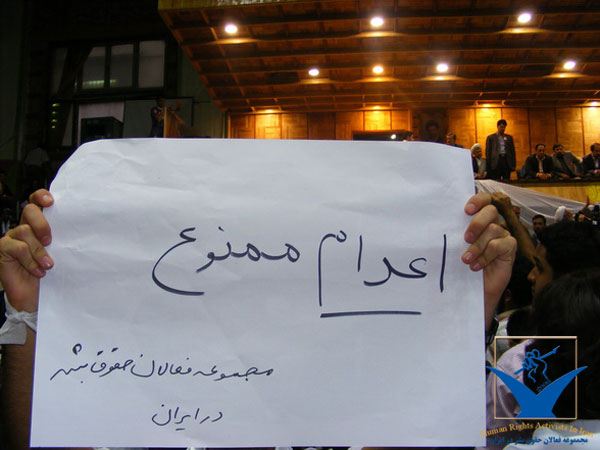 اعدام ممنوع
مجموعه فعالان حقوق بشر
در ایران
Human Rights Activists In Iran
مجموعه فعالان حقوق بشر در ایران